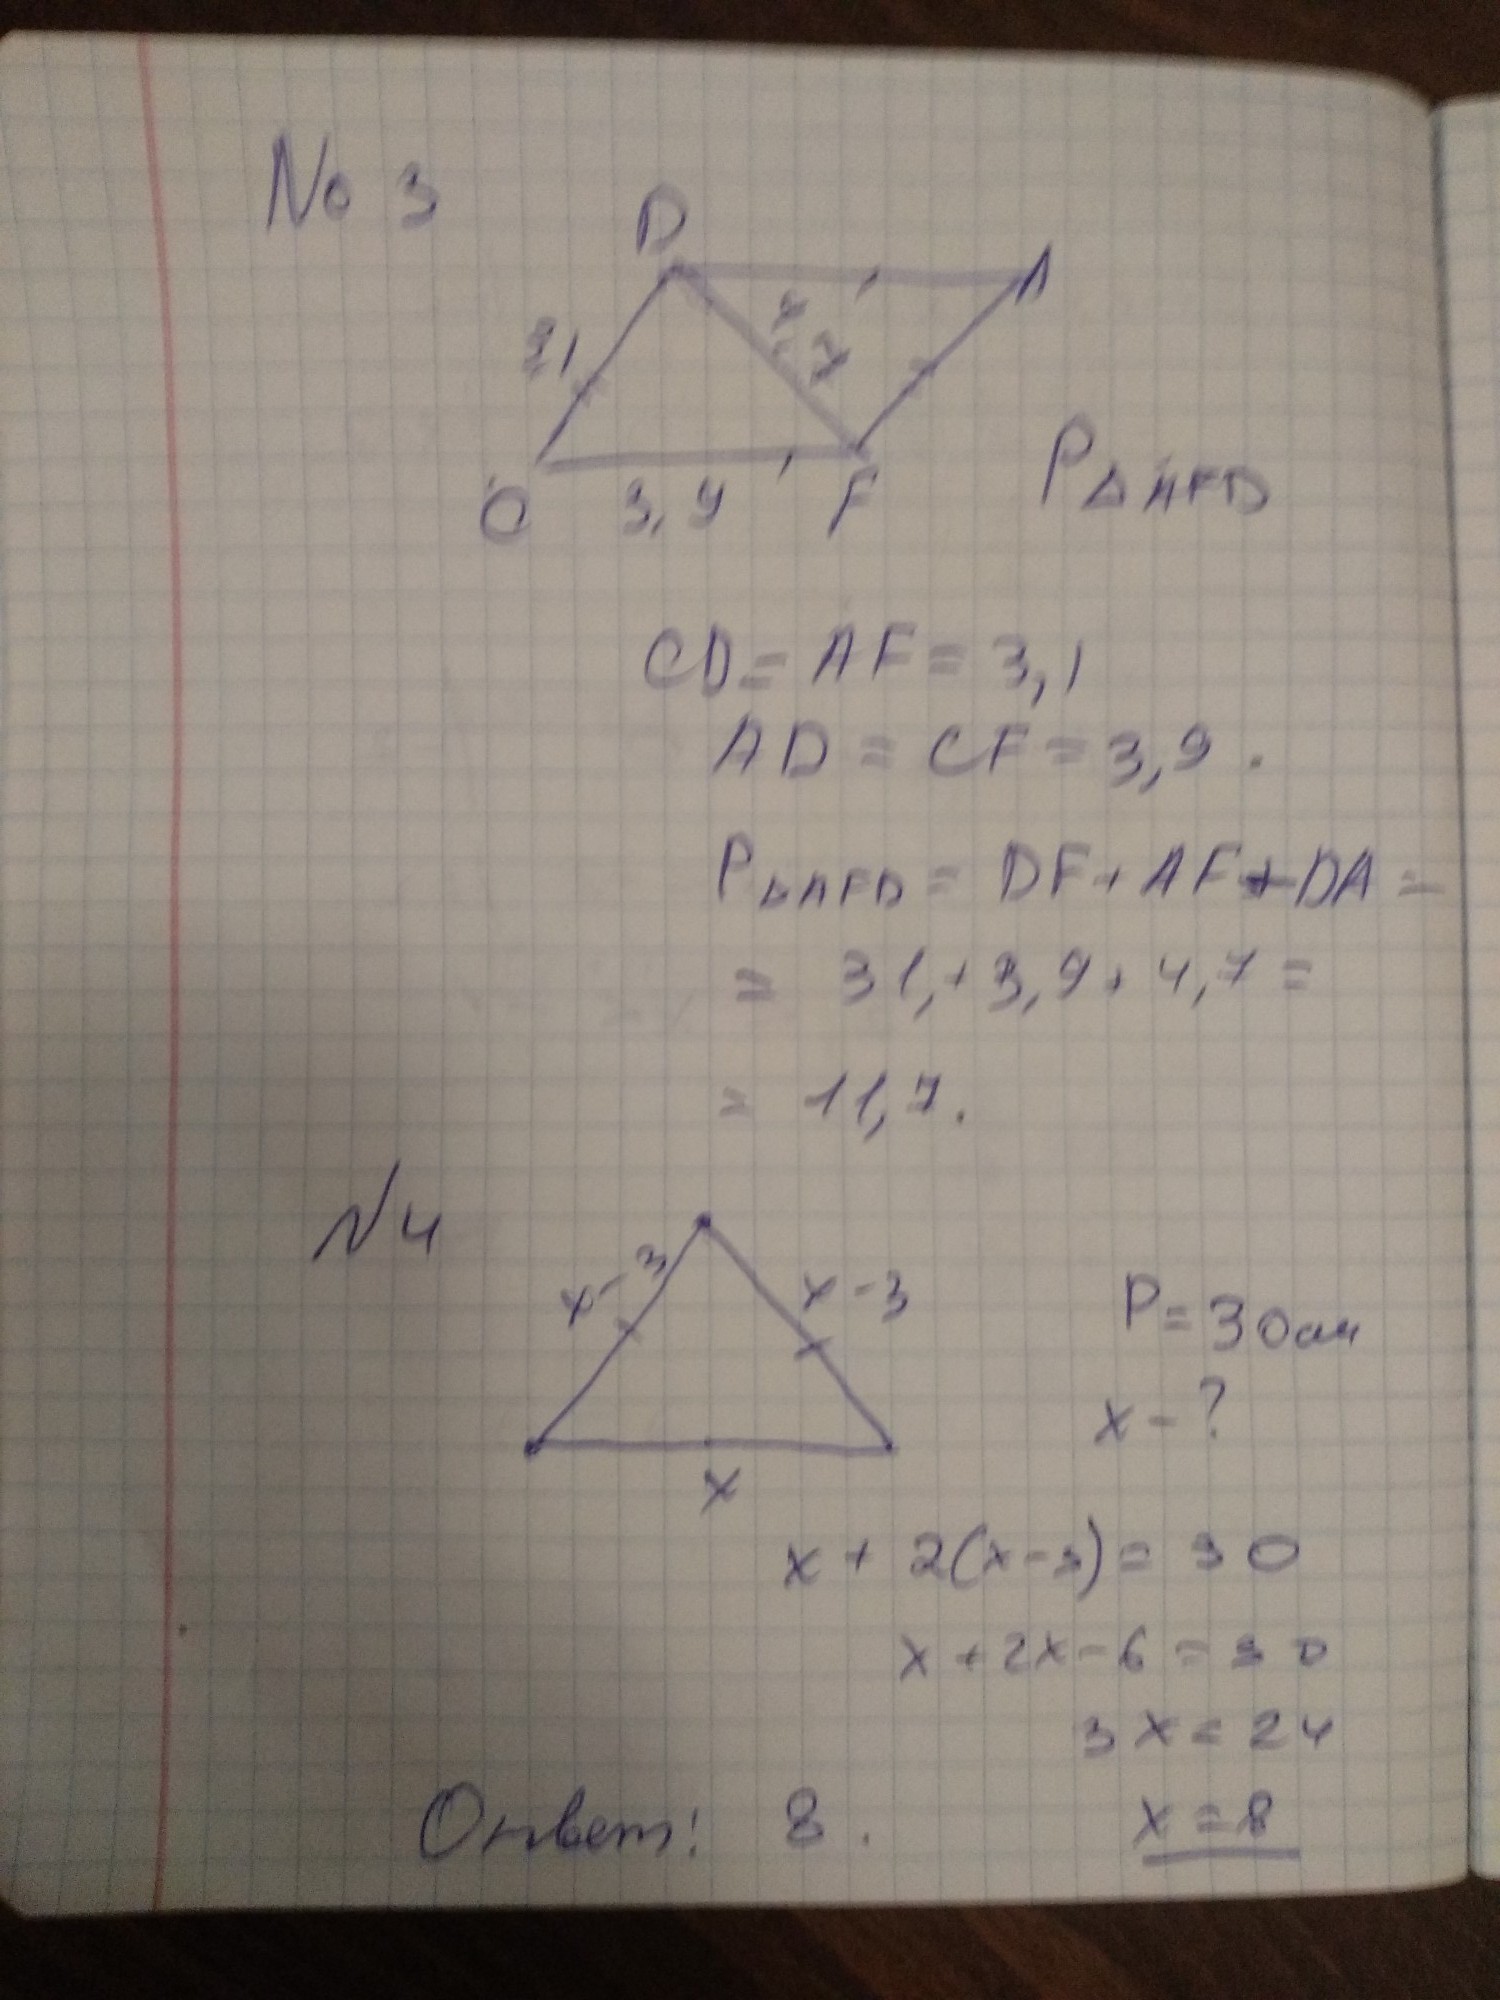 No 3
D
A
3,1
4,7
C 3,9 F
P△AFD
CD = AF = 3,1
AD = CF = 3,9.
P△AFD = DF + AF + DA =
= 31, + 3,9 + 4,7 =
= 11,7.
N4
x - 3
x - 3
P = 30см
x - ?
x
x + 2(x-3) = 30
x + 2x - 6 = 30
3x = 24
x = 8
Ответ: 8.